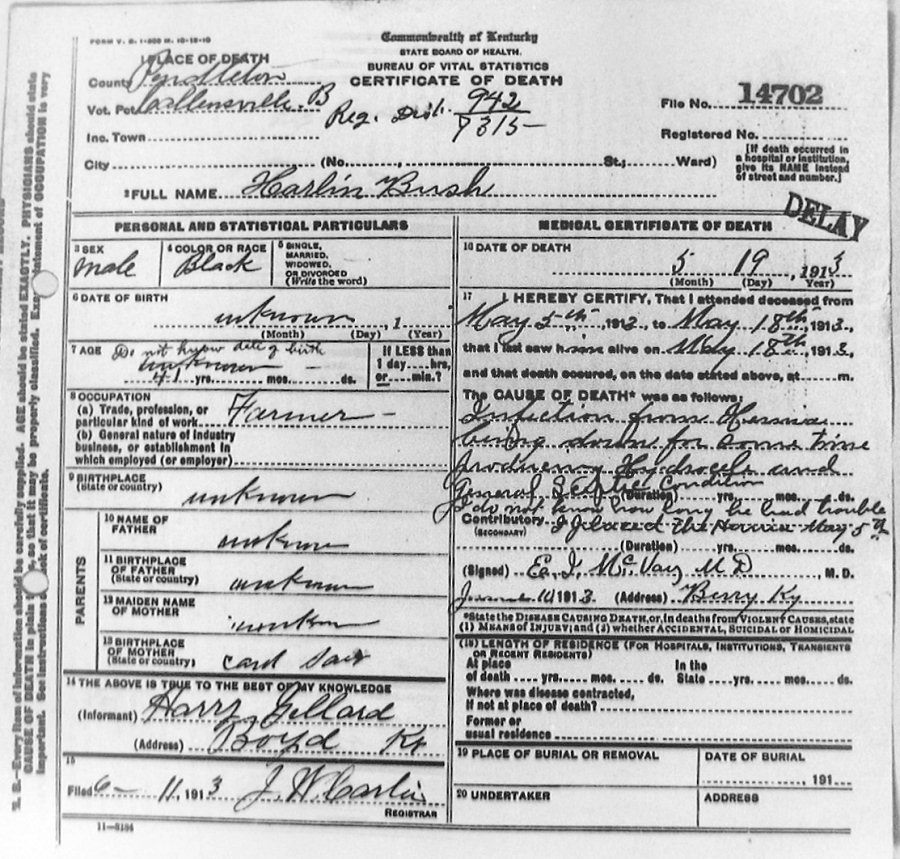 FORM V. S. 1-200 M. 10-12-10
Commonwealth of Kentucky
STATE BOARD OF HEALTH.
BUREAU OF VITAL STATISTICS
CERTIFICATE OF DEATH
1 PLACE OF DEATH
County Pendleton
Vot. Pct Callensville. B
Reg. Dist. 942
7315
File No. 14702
Inc. Town
Registered No.
City (No. , St.; Ward)
[If death occurred in
a hospital or institution,
give its NAME instead
of street and number.]
2 FULL NAME Harlin Bush
DELAY
PERSONAL AND STATISTICAL PARTICULARS
3 SEX
male
4 COLOR OR RACE
Black
5 SINGLE,
MARRIED,
WIDOWED,
OR DIVORCED
(Write the word)
6 DATE OF BIRTH
unknown , 1
(Month) (Day) (Year)
7 AGE Do not know date of birth
unknown
yrs. mos. ds.
If LESS than
1 day hrs.
or min.?
8 OCCUPATION
(a) Trade, profession, or
particular kind of work Farmer
(b) General nature of industry
business, or establishment in
which employed (or employer)
9 BIRTHPLACE
(State or country)
unknown
PARENTS
10 NAME OF
FATHER
unknown
11 BIRTHPLACE
OF FATHER
(State or country)
unknown
12 MAIDEN NAME
OF MOTHER
unknown
13 BIRTHPLACE
OF MOTHER
(State or country)
cant say
14 THE ABOVE IS TRUE TO THE BEST OF MY KNOWLEDGE
(Informant) Harry Gillard
(Address) Boyd Ky
15
Filed 6- 11, 1913 J. W. Carlin
REGISTRAR
11-5184
MEDICAL CERTIFICATE OF DEATH
16 DATE OF DEATH
5 19 , 1913
(Month) (Day) Year)
17 I HEREBY CERTIFY, That I attended deceased from
May 5th, 1913, to May 18th, 1913,
that I last saw him alive on May 18th, 1913,
and that death occured, on the date stated above, at m.
The CAUSE OF DEATH* was as follows:
Infection from Hernia
being down for some time
producing Hydrocele and
General Septic Condition
(Duration) yrs. mos. ds.
I do not know how long he had trouble
Contributory. I placed the Hernia May 5th
(SECONDARY)
(Duration) yrs. mos. ds.
(Signed) Ea. I. McVay M D , M. D.
June 10 1913 (Address) Berry Ky
*State the DISEASE CAUSING DEATH, or, in deaths from VIOLENT CAUSES, state
(1) MEANS OF INJURY; and (2) whether ACCIDENTAL, SUICIDAL OR HOMICIDAL
(18) LENGTH OF RESIDENCE (FOR HOSPITALS, INSTITUTIONS, TRANSIENTS
OR RECENT RESIDENTS)
At place
of death yrs. mos. ds.
In the
State yrs. mos. ds.
Where was disease contracted,
if not at place of death?
Former or
usual residence
19 PLACE OF BURIAL OR REMOVAL
DATE OF BURIAL
, 191
20 UNDERTAKER
ADDRESS
Every item of information should be carefully supplied. AGE should be stated EXACTLY. PHYSICIANS should state
CAUSE OF DEATH in plain so that it may be properly classified. statement of OCCUPATION is very
important. See instructions of certificate.